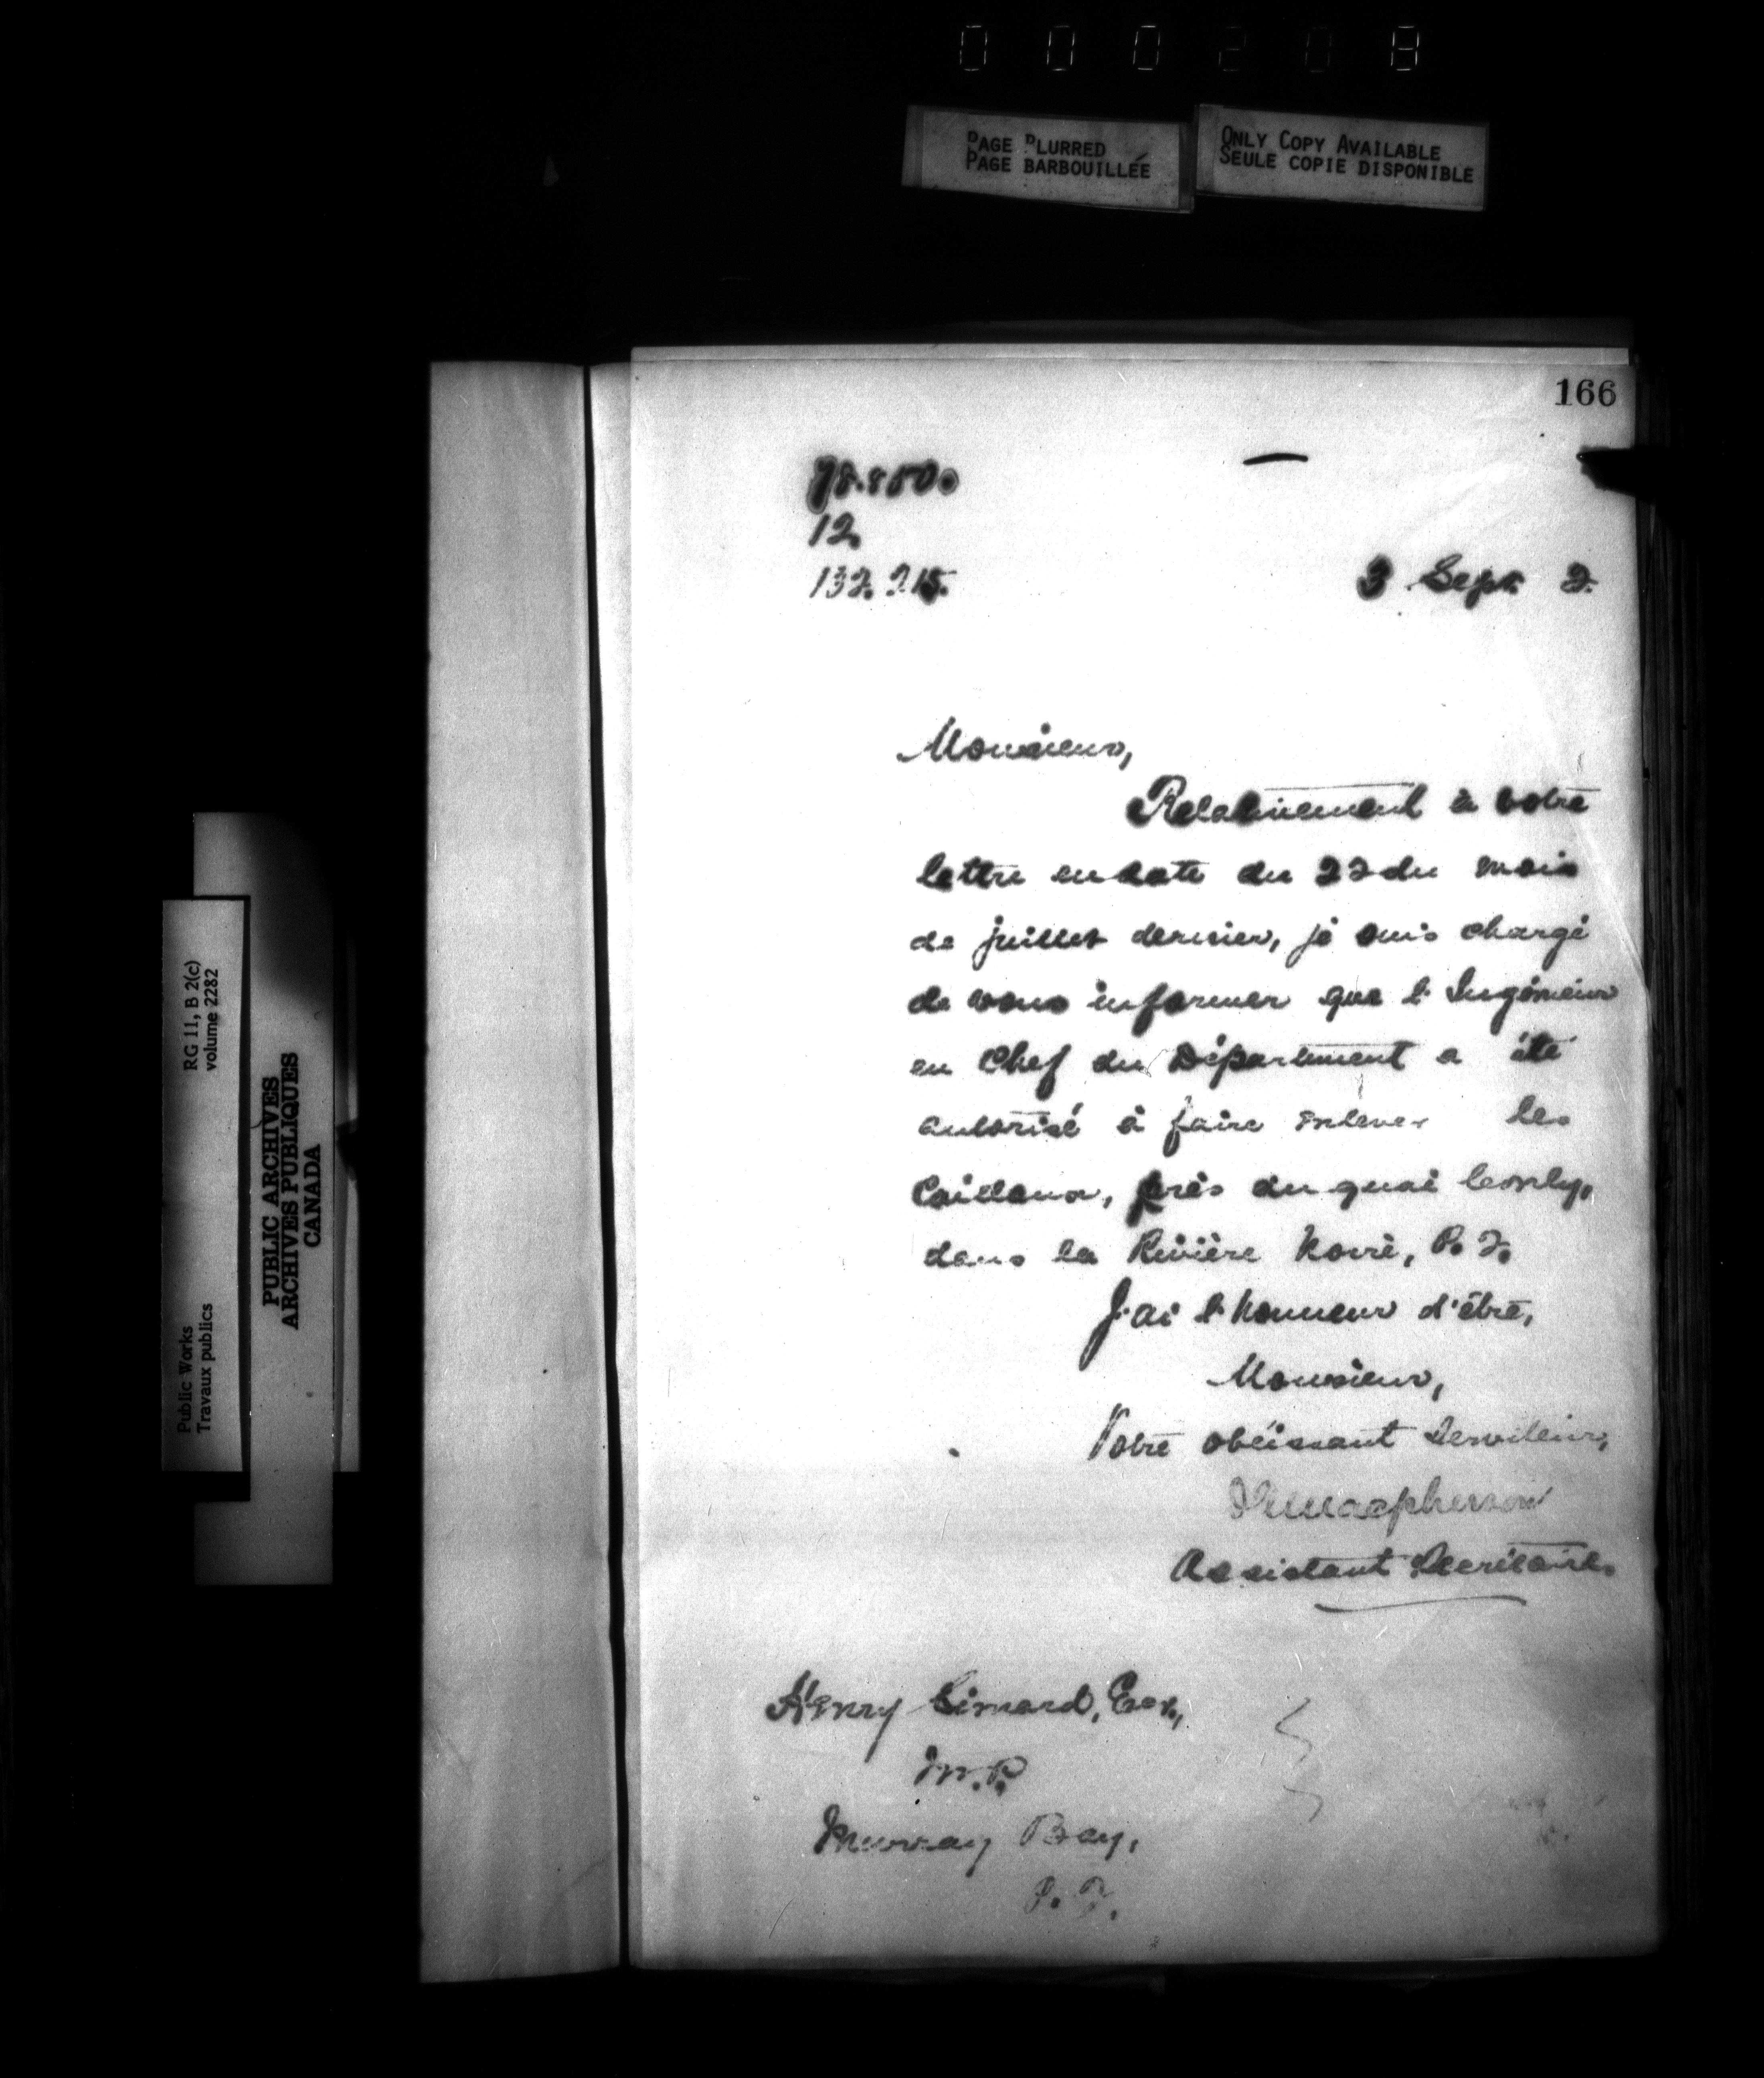 000208
PAGE BLURRED
PAGE BARBOUILLÉE
ONLY COPY AVAILABLE
SEULE COPIE DISPONIBLE
166
12.
3 Sept. 2.
Monsieur,
Relativement à votre
lettre en date du 22 du mois
de juillet dernier, je suis chargé
de vous informer que l'Ingénieur
en Chef du Département a été
autorisé à faire enlever les
Cailloux, près du quai
dans la Rivière Noire, P. Q.
J'ai l'honneur d'être,
Monsieur,
Votre obéissant Serviteur,
Macpherson
Assistant Secrétaire.
Henry Simard, Esq.,
M.P.
Murray Bay,
P. Q.
Public Works
Travaux publics
RG 11, B 2(c)
volume 2282
PUBLIC ARCHIVES
ARCHIVES PUBLIQUES
CANADA